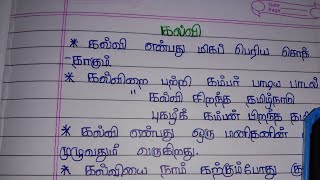 கல்வி
* கல்வி என்பது மிகப் பெரிய சொத்
-தாகும்
* கல்வியை பற்றி கம்பர் பாடிய பாடல்
" கல்வி சிறந்த தமிழ்நாடு
புகழ்க் கம்பன் பிறந்த
* கல்வி என்பது ஒரு மனிதனின்
முழுவதும் வருகிறது.
* கல்வியை நாம் கற்கும்போது